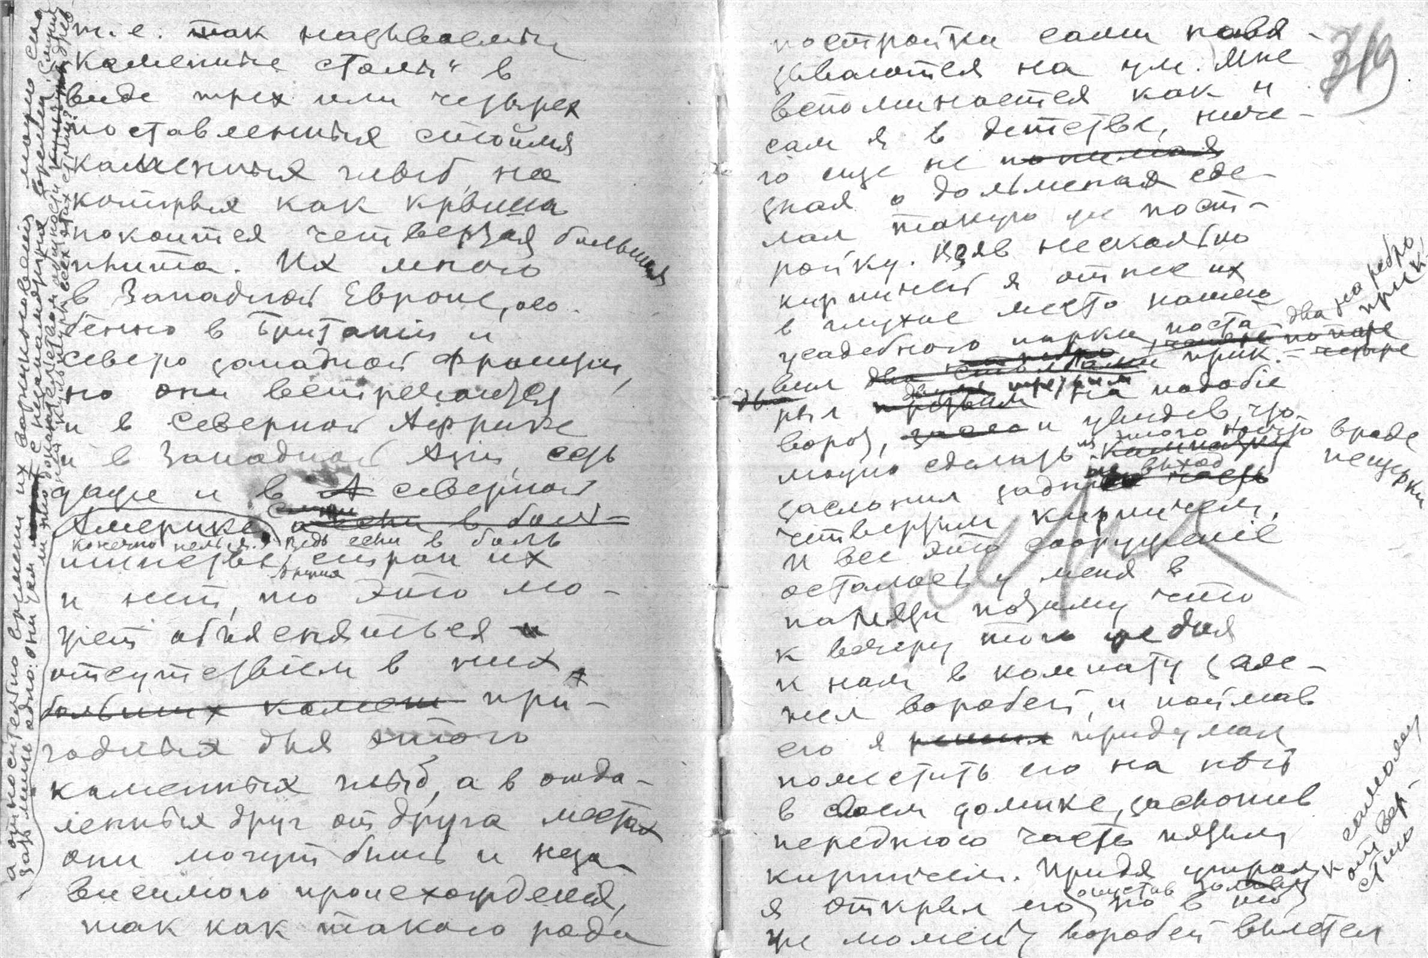 т.е. так называемыи
"каменные столы" в
виде трех или четырех
поставленных стоймя
каменных глыб, на
которых как крыша
покоится четвертая большая
плита. Их много
в Западной Европе, осо-
бенно в Британии и
северо западной Франции,
но они встречаются
и в северной Африке
и в Западной Азии, есть
даже и в северной
Америке, а если в боль-
конечно нельзя. Ведь если в боль
шинстве стран их
и нет, то это мо-
жет объясняться
отсутствием в них
больших камен при-
годных для этого
каменных глыб, а в отда-
ленных друг от друга местах
они могут быть и неза-
висимого происхождения,
так как такого рода
а относительно времени их возникновения можно ска
зать лишь одно:
319
постройки сами навя-
зываются на ум. Мне
вспоминается как и
сам я в детстве, ниче-
го еще не понимая
зная о дольменах сде-
лал такую же пост-
ройку. Взяв несколько
кирпичей я отнес их
в глухое место нашего
усадебного парка, поста
вил два на ребро прик-
рыл третьим на подобие
ворот, и увидев, что
можно сделать из этого нечто вроде пещерки
заслонил выход
четвертым кирпичем,
И все это сооружение
осталось у меня в
памяти потому что
к вечеру того же дня
к нам в комнату зале-
тел воробей, и поймав
его я решил придумал
поместить его на ночь
в своем домике, заслонив
переднюю часть пятым
кирпичем. Придя утром к самому отверстию
я открыл его но в тот
же момент воробей вылетел